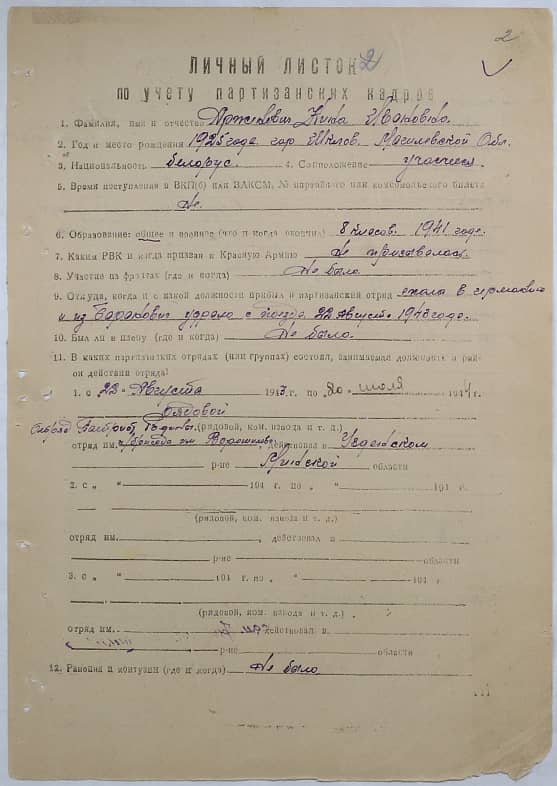 2
ЛИЧНЫЙ ЛИСТОК 2
по учету партизанских кадров
1. Фамилия, имя и отчество Аржкевич Нина Ивановна.
2. Год и место рождения 1925 года. гор Шклов. Могилевской Обл.
3. Национальность белорус 4. Соцположение учащиеся.
5. Время поступления в ВКП(б) или ВЛКСМ, № партийного или комсомольского билета
Не.
6. Образование: общее и военное (что и когда окончил) 8 класов. 1941 годе.
7. Каким РВК и когда призван в Красную Армию Не призывалась
8. Участие на фронтах (где и когда) Не было
9. Откуда, когда и с какой должности прибыл в партизанский отряд ехала в германию
и из Баранович удрала с поезда 22 Августа 1943 годе.
10. Был ли в плену (где и когда) Не было.
11. В каких партизанских отрядах (или группах) состоял, занимаемая должность и рай-
он действия отряда:
1. с 22 " Августа 1943 г. по 20 июля 1944 г.
Рядовой
(рядовой, ком. взвода и т. д.)
Отряд Патриот Родины
отряд им. бригада им Ворошилова, действовал в Узденском
р-не Минской области
2. с „ “ 194 г. по „ “ 194 г.
(рядовой, ком. взвода и т. д.)
отряд им. , действовал в
р-не области
3. с „ “ 194 г. по „ “ 194 г.
(рядовой, ком. взвода и т. д.)
отряд им. действовал в
р-не области
12. Ранения и контузии (где и когда) Не было